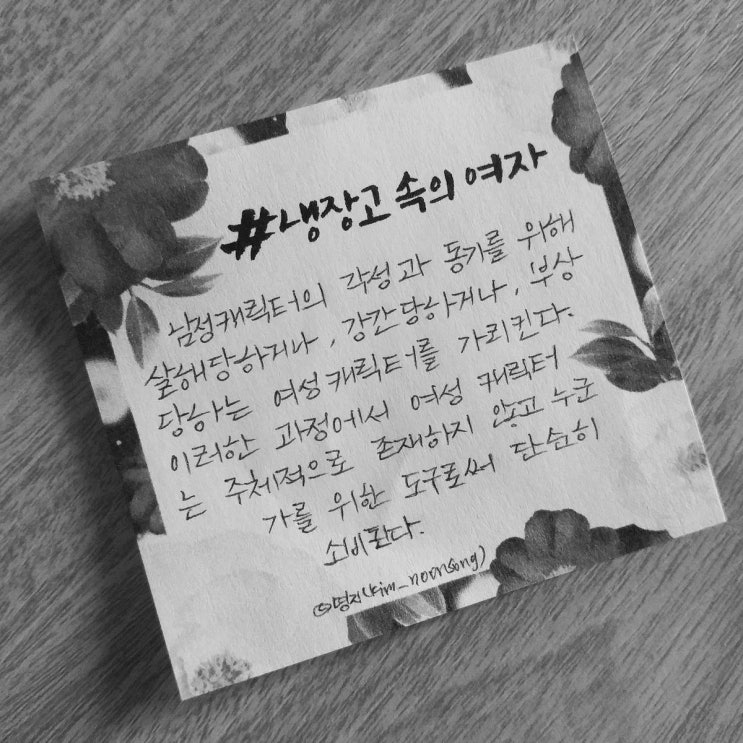 #냉장고 속의 여자
남정캐릭터의 각성과 동기를 위해
살해당하거나, 강간당하거나, 부상
당하는 여성캐릭터를 가리킨다.
이러한 과정에서 여성 캐릭터
는 주체적으로 존재하지 않고 누군
가를 위한 도구로써 단순히
소비된다.
@명지(kim_noonsong)